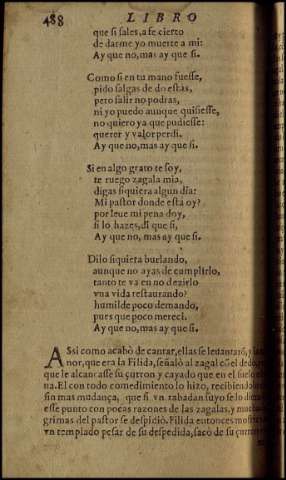 488 LIBRO
que si sales, a fe cierto
de darme yo muerte a mi:
Ay que no, mas ay que si.
Como si en tu mano fuesse,
pido salgas de do estàs,
pero salir no podras,
ni yo puedo aunque quisiesse,
no quiero ya que pudiesse:
querer y valor perdi.
Ay que no, mas ay que si.
Si en algo grato te soy,
te ruego zagala mia,
digas siquiera algun dia:
Mi pastor donde esta oy?
por leue mi pena doy,
si lo hazes, di que si,
Ay que no, mas ay que si.
Dilo siquiera burlando,
aunque no ayas de cumplirlo,
tanto te va en no dezirlo
vna vida restaurando?
humilde poco demando,
pues que poco mereci.
Ay que no, mas ay que si.
ASsi como acabò de cantar, ellas se leuantarõ, y
nor, que era la Filida, señalò al zagal cõ el dedo,
que le alcançasse su çurron y cayado que en el suelo
na. El con todo comedimiento lo hizo, recibiendolo
sin mas mudança, que si vn rabadan suyo se lo
esse punto con pocas razones de las zagalas, y muchas
grimas del pastor se despidiò. Filida entonces
vn templado pesar de su despedida, sacò de su çurron